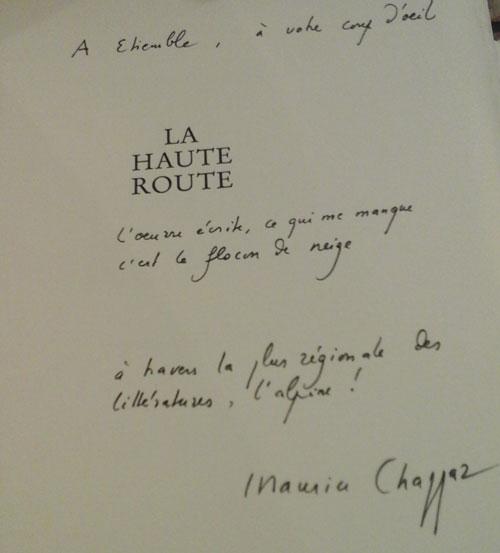 A Etiemble, à votre coup d'oeil
LA
HAUTE
ROUTE
L'oeuvre écrite, ce qui me manque
c'est le flocon de neige
à travers la plus régionale des
littératures, l'alpine !
Maurice Chappaz